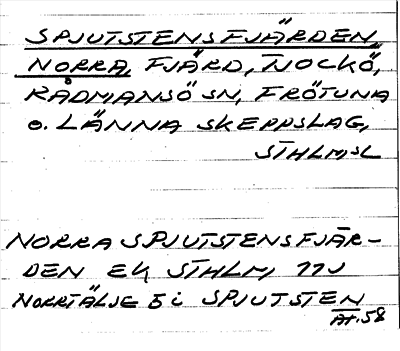 SPJUTSTENSFJÄRDEN,
NORRA, FJÄRD, TJOCKÖ,
RÅDMANSÖ SN, FRÖTUNA
o. LÄNNA SKEPPSLAG,
STHLMSL
NORRA SPJUTSTENSFJÄR-
DEN EK STHLM 11J
NORRTÄLJE 5i SPJUTSTEN
AT. 58